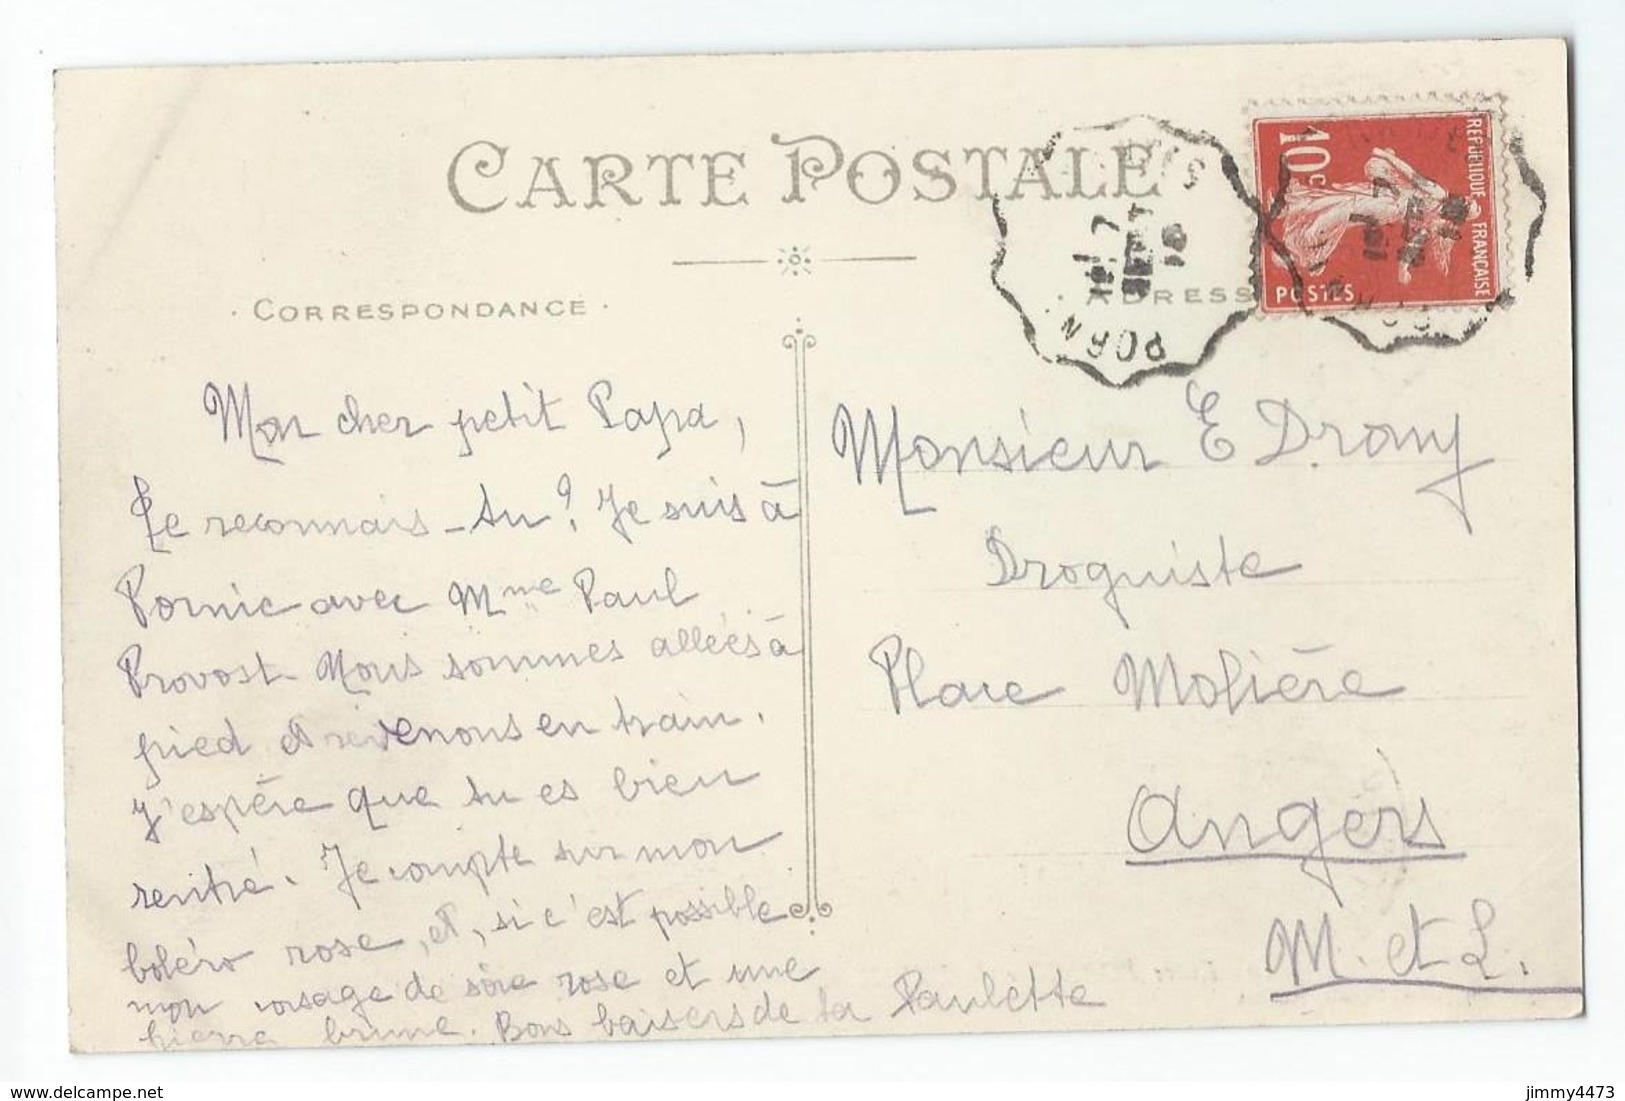 CARTE POSTALE
· CORRESPONDANCE ·
· ADRESS
RÉPUBLIQUE FRANÇAISE
10c
POSTES
7
SEPT
PORN
Mon cher petit Papa,
Te reconnais-tu ? Je suis à
Pornic avec Mme Paul
Provost. Nous sommes allées à
pied et revenons en train.
J'espère que tu es bien
rentré. Je compte sur mon
boléro rose, et, si c'est possible
mon corsage de soie rose et une
pierre brune. Bons baisers de ta Paulette
Monsieur E Drouy
Droguiste
Place Molière
Angers
M. et L.
jimmy4473